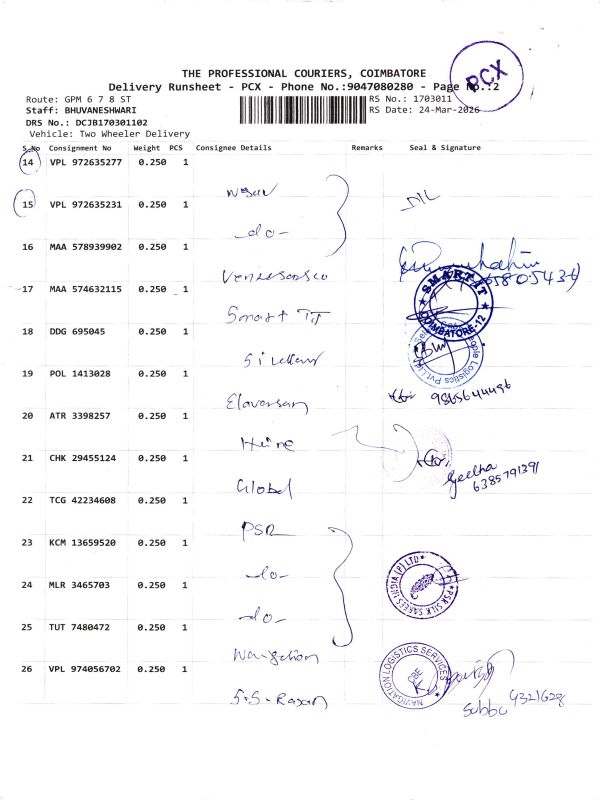 PCX
THE PROFESSIONAL COURIERS, COIMBATORE
Delivery Runsheet - PCX - Phone No.:9047080280 - Page No.:2
Route: GPM 6 7 8 ST
RS No.: 1703011
Staff: BHUVANESHWARI
RS Date: 24-Mar-2026
DRS No.: DCJB170301102
Vehicle: Two Wheeler Delivery
S.No Consignment No Weight PCS Consignee Details Remarks Seal & Signature
14 VPL 972635277 0.250 1
15 VPL 972635231 0.250 1
-do-
16 MAA 578939902 0.250 1
17 MAA 574632115 0.250 1
Smart
SMARTAT
COIMBATORE-12
18 DDG 695045 0.250 1
People Logistics Pvt
19 POL 1413028 0.250 1
Elavarsan 9865644496
20 ATR 3398257 0.250 1
21 CHK 29455124 0.250 1
Geetha
6385791391
Global
22 TCG 42234608 0.250 1
PSR
23 KCM 13659520 0.250 1
-do-
PSR SILK SAREES INDIA (P) LTD
24 MLR 3465703 0.250 1
-do-
25 TUT 7480472 0.250 1
Navigation
NAVIGATION LOGISTICS SERVICES
CBE
26 VPL 974056702 0.250 1
S.S. Rajan
Subbu 4321628